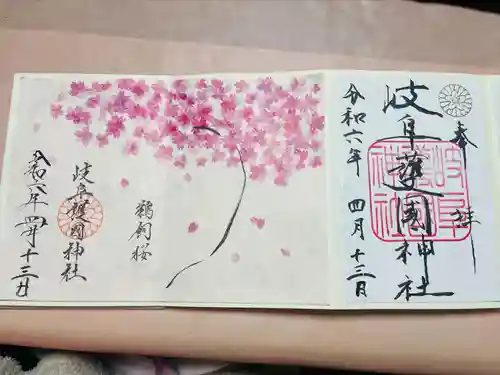 奉拝
岐阜護國神社
令和六年 四月十三日
岐阜護國神社
鵜飼桜
岐阜護國神社
令和六年 四月十三日